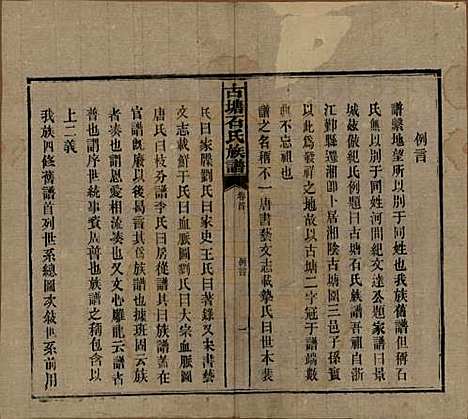 例言
譜繫地望所以別于同姓也我族舊譜但稱石
氏無以別于同姓河間紀文達公題家譜曰景
城茲倣紀氏例題曰古塘石氏族譜吾祖自浙
江鄞縣遷湘卽卜居湘陰古塘圍三邑子孫賓
以此為發祥之地故以古塘二字冠于譜端數
典不忘祖也
譜之名稱不一唐書藝文志載摯氏曰世本裴
古塘石氏族譜
卷首
例言
一
氏曰家牒劉氏曰家史王氏曰著錄宋書藝
文志載鮮于氏曰血脈圖劉氏曰大宗血脈圖
唐人仿族稱房分譜李氏曰房從譜其以族譜蓋在
官譜旣廢以後曷言其為族譜也據班固云族
者湊也謂恩愛相流湊也又文心雕龍云譜者
普也謂序世統事資周普也族譜之稱包含以
上二義
我族四修舊譜首列世系總圖次敘世系前用